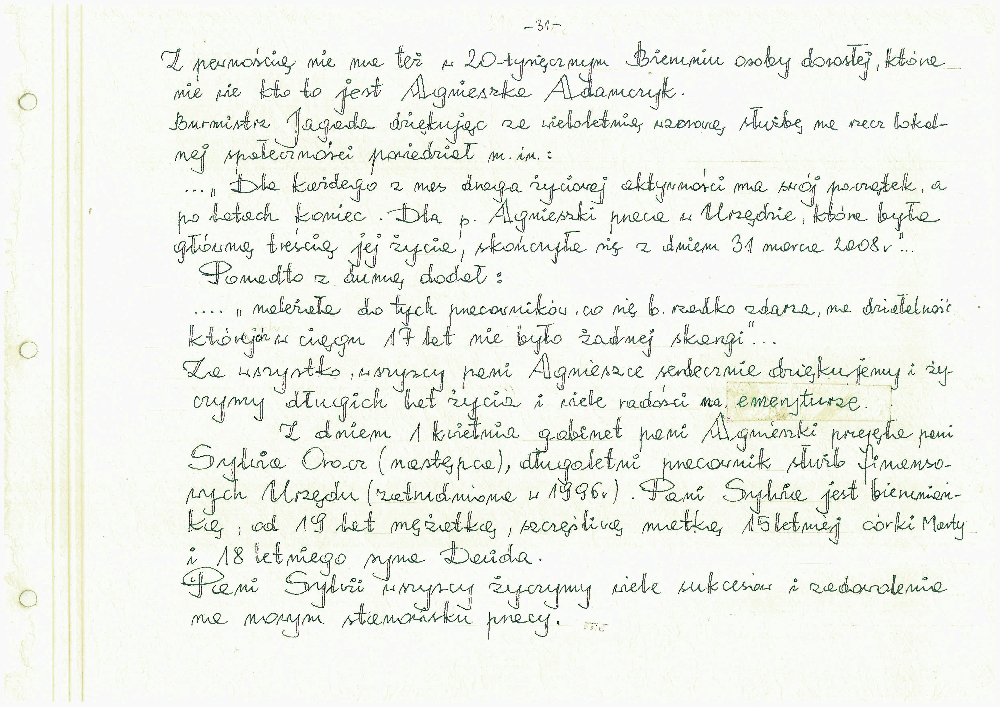 -31-
Z pewnością nie ma też w 20-tysięcznym Bieruniu osoby dorosłej, która
nie wie kto to jest Agnieszka Adamczyk.
Burmistrz Jagoda dziękując za wieloletnią wzorową służbę na rzecz lokal-
nej społeczności powiedział m.in.:
..." Dla każdego z nas droga życiowej aktywności ma swój początek, a
po latach koniec. Dla p. Agnieszki praca w Urzędzie, która była
główną treścią jej życia, skończyła się z dniem 31 marca 2008r"...
Ponadto z dumą dodał:
...." należała do tych pracowników, co się b. rzadko zdarza, na działalność
których w ciągu 17 lat nie było żadnej skargi"...
Za wszystko, wszyscy pani Agnieszce serdecznie dziękujemy i ży-
czymy długich lat życia i wiele radości na emeryturze.
Z dniem 1 kwietnia gabinet pani Agnieszki przejęła pani
Sylwia Orocz (następca), długoletni pracownik służb finanso-
wych Urzędu (zatrudniona w 1996r). Pani Sylwia jest bierunian-
ką, od 19 lat mężatką, szczęśliwą matką 15letniej córki Marty
i 18letniego syna Dawida.
Pani Sylwii wszyscy życzymy wiele sukcesów i zadowolenia
na nowym stanowisku pracy.